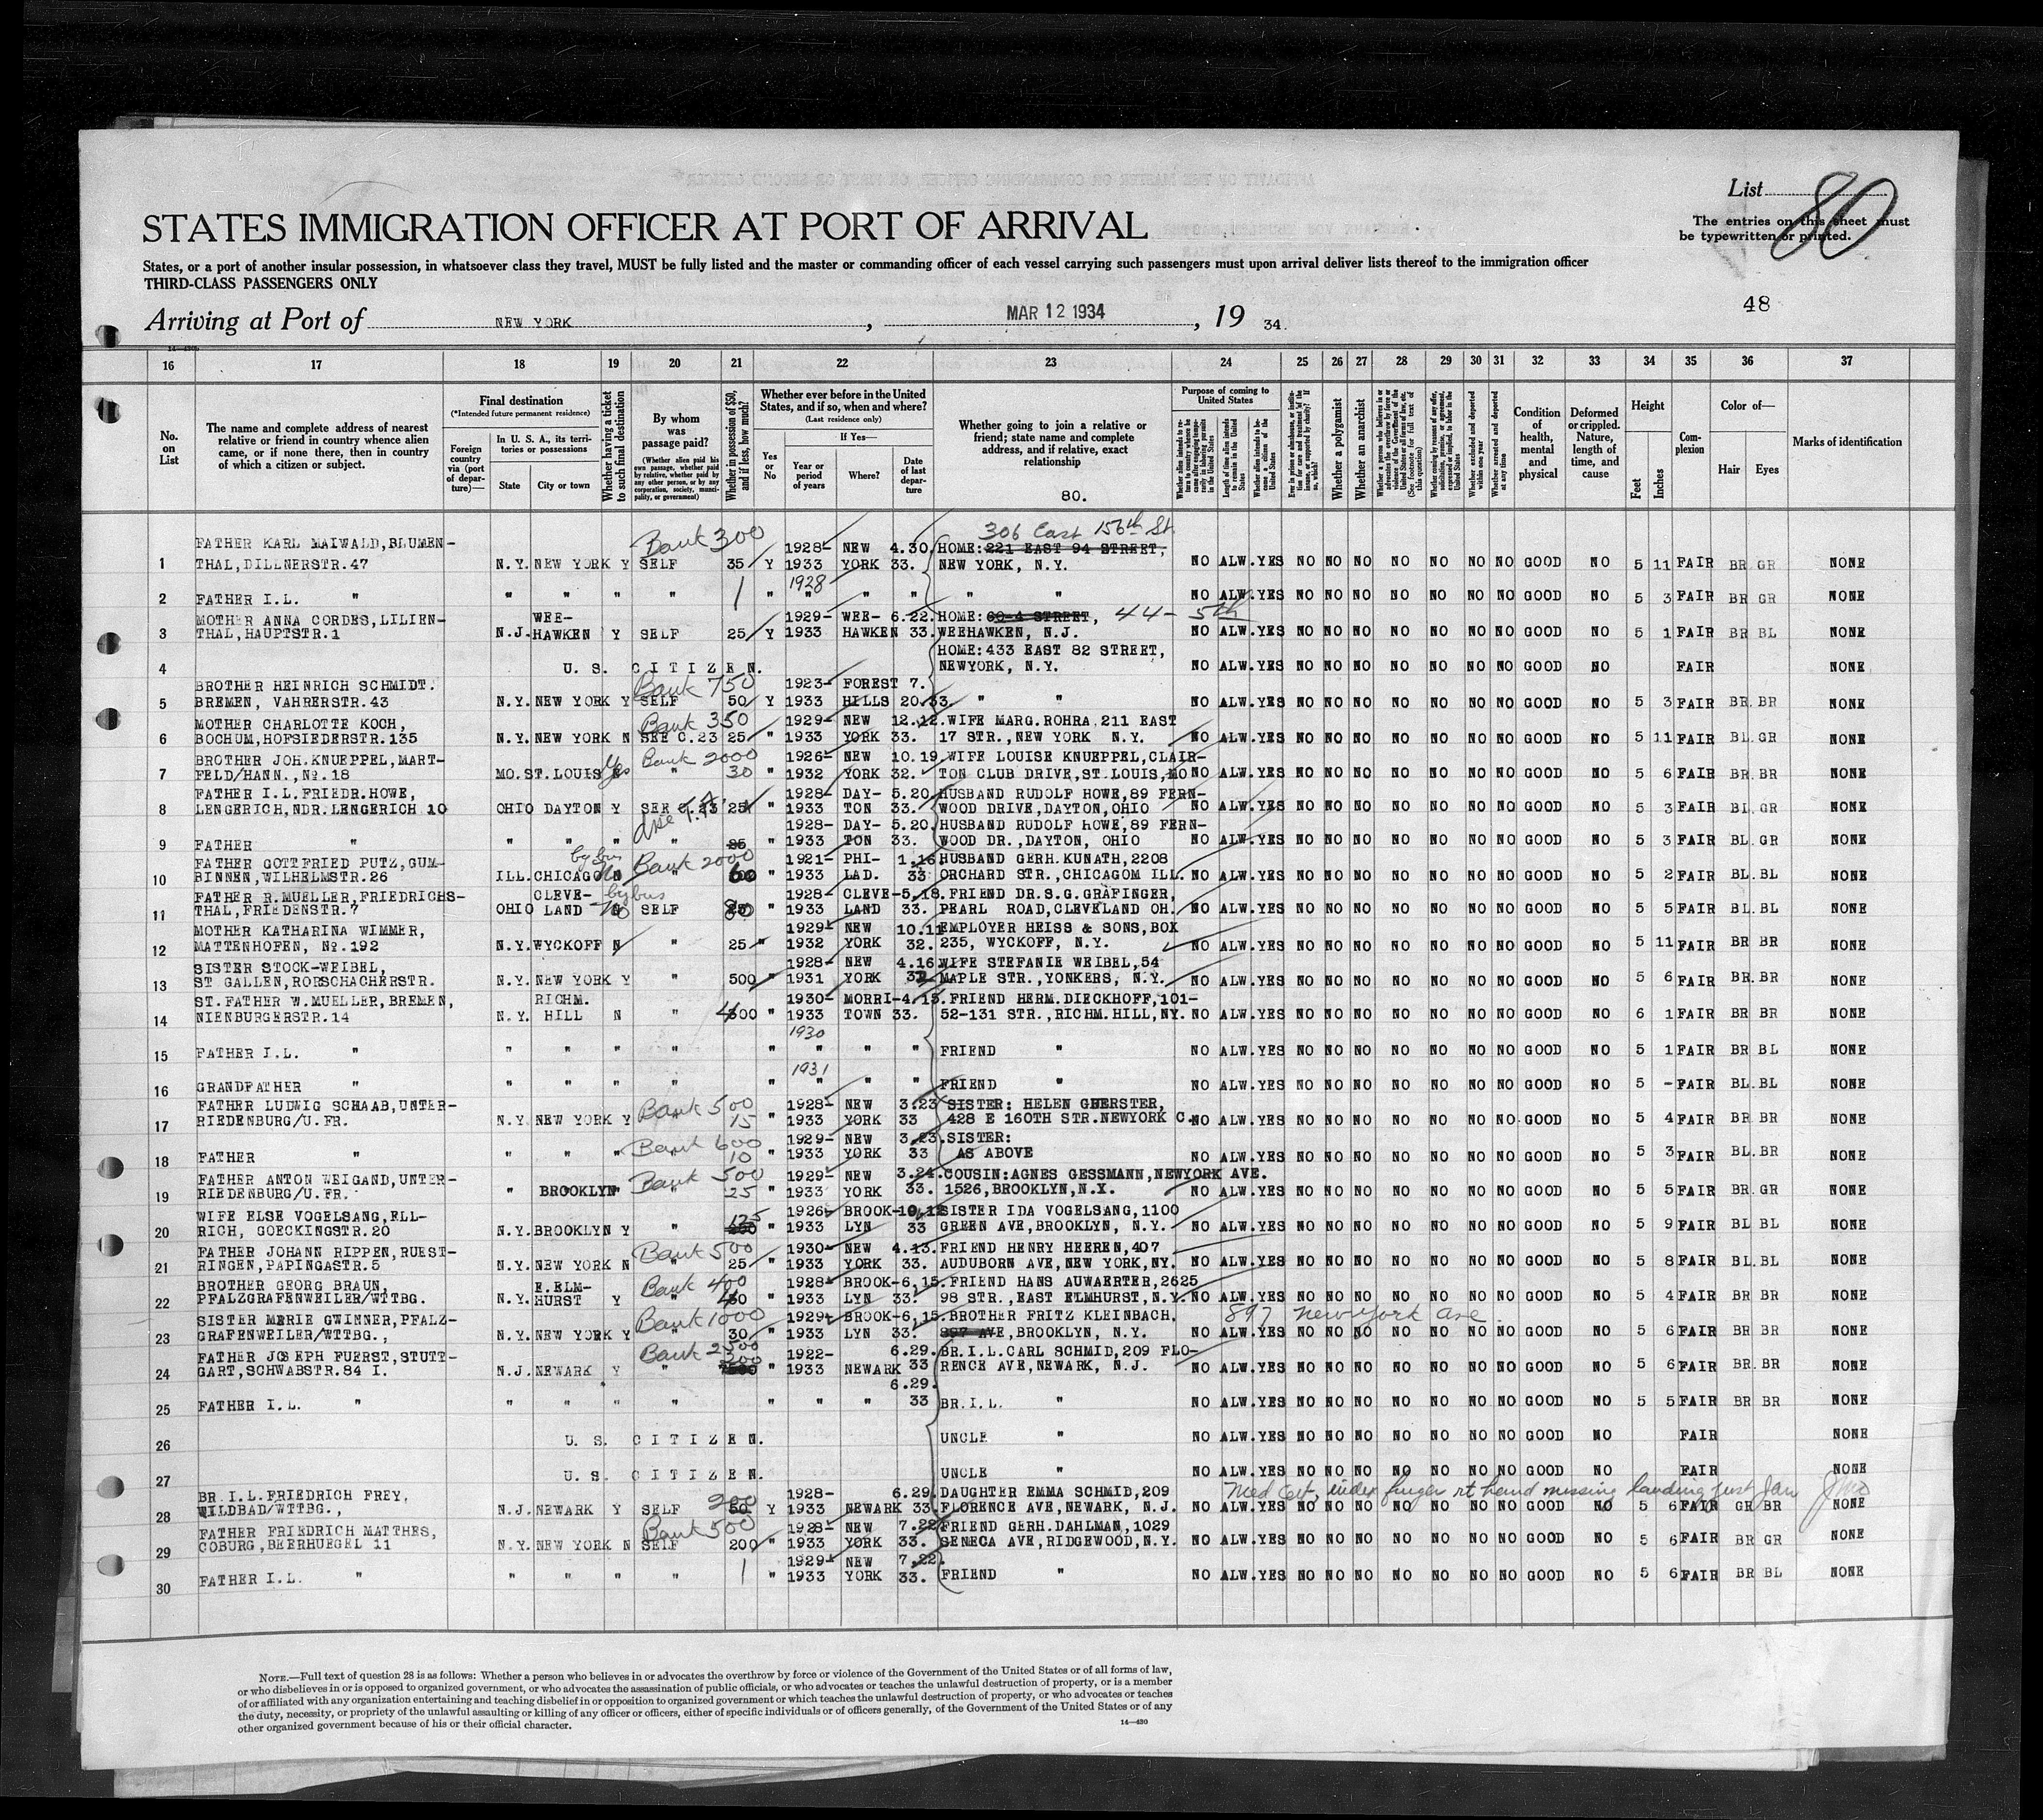 List 80
The entries on this sheet must
be typewritten or printed.
STATES IMMIGRATION OFFICER AT PORT OF ARRIVAL
States, or a port of another insular possession, in whatsoever class they travel, MUST be fully listed and the master or commanding officer of each vessel carrying such passengers must upon arrival deliver lists thereof to the immigration officer
THIRD-CLASS PASSENGERS ONLY
48
Arriving at Port of NEW YORK, MAR 12 1934, 19 34.
16 17 18 19 20 21 22 23 24 25 26 27 28 29 30 31 32 33 34 35 36 37
No. on List
The name and complete address of nearest relative or friend in country whence alien came, or if none there, then in country of which a citizen or subject.
Final destination
(*Intended future permanent residence)
Foreign country via (port of departure)—
In U. S. A., its territories or possessions
State
City or town
Whether having a ticket to such final destination
By whom was passage paid?
(Whether alien paid his own passage, whether paid by relative, whether paid by any other person, or by any corporation, society, municipality, or government)
Whether in possession of $50, and if less, how much?
Whether ever before in the United States, and if so, when and where?
(Last residence only)
Yes or No
If Yes—
Year or period of years
Where?
Date of last departure
Whether going to join a relative or friend; state name and complete address, and if relative, exact relationship
80.
Purpose of coming to United States
Length of time alien intends to remain in the United States
Whether alien intends to become a citizen of the United States
Whether a polygamist
Whether an anarchist
Whether excluded and deported within one year
Whether arrested and deported at any time
Condition of health, mental and physical
Deformed or crippled. Nature, length of time, and cause
Height
Feet
Inches
Complexion
Color of—
Hair
Eyes
Marks of identification
Bank 300 306 East 156th St.
FATHER KARL MAIWALD, BLUMEN- 1928- NEW 4.30. HOME: 221 EAST 94 STREET,
1 THAL, DILLNERSTR.47 N.Y. NEW YORK Y SELF 35 Y 1933 YORK 33. NEW YORK, N.Y. NO ALW. YES NO NO NO NO NO NO NO GOOD NO 5 11 FAIR BR GR NONE
1928
2 FATHER I.L. " " " " " 1 " " " " " " NO ALW. YES NO NO NO NO NO NO NO GOOD NO 5 3 FAIR BR GR NONE
MOTHER ANNA CORDES, LILIEN- WEE- 1929- WEE- 6.22. HOME: 60-4 STREET, 44- 5th
3 THAL, HAUPTSTR.1 N.J. HAWKEN Y SELF 25 Y 1933 HAWKEN 33. WEEHAWKEN, N.J. NO ALW. YES NO NO NO NO NO NO NO GOOD NO 5 1 FAIR BR BL NONE
HOME: 433 EAST 82 STREET,
4 U. S. CITIZEN. NEWYORK, N.Y. NO ALW. YES NO NO NO NO NO NO NO GOOD NO FAIR NONE
BROTHER HEINRICH SCHMIDT. Bank 750 1923- FOREST 7.
5 BREMEN, VAHRERSTR.43 N.Y. NEW YORK Y SELF 50 Y 1933 HILLS 20.33. " " NO ALW. YES NO NO NO NO NO NO NO GOOD NO 5 3 FAIR BR. BR NONE
MOTHER CHARLOTTE KOCH, Bank 350 1929- NEW 12.12. WIFE MARG. ROHRA, 211 EAST
6 BOCHUM, HOFSIEDERSTR.135 N.Y. NEW YORK N SEE C.23 25 " 1933 YORK 33. 17 STR., NEW YORK N.Y. NO ALW. YES NO NO NO NO NO NO NO GOOD NO 5 11 FAIR BL. GR NONE
BROTHER JOH. KNUEPPEL, MART- Yes Bank 2000 1926- NEW 10.19. WIFE LOUISE KNUEPPEL, CLAIR-
7 FELD/HANN., No.18 MO. ST. LOUIS N " 30 " 1932 YORK 32. TON CLUB DRIVE, ST. LOUIS, MO NO ALW. YES NO NO NO NO NO NO NO GOOD NO 5 6 FAIR BR. BR NONE
FATHER I.L. FRIEDR. HOWE, 1928- DAY- 5.20. HUSBAND RUDOLF HOWE, 89 FERN-
8 LENGERICH, NDR. LENGERICH 10 OHIO DAYTON Y SEE C.23 25 " 1933 TON 33. WOOD DRIVE, DAYTON, OHIO NO ALW. YES NO NO NO NO NO NO NO GOOD NO 5 3 FAIR BL. GR NONE
1928- DAY- 5.20. HUSBAND RUDOLF HOWE, 89 FERN-
9 FATHER " " " " " 25 " 1933 TON 33. WOOD DR., DAYTON, OHIO NO ALW. YES NO NO NO NO NO NO NO GOOD NO 5 3 FAIR BL. GR NONE
FATHER GOTTFRIED PUTZ, GUM- by bus Bank 2000 1921- PHI- 1.16. HUSBAND GERH. KUNATH, 2208
10 BINNEN, WILHELMSTR.26 ILL. CHICAGO No " 60 " 1933 LAD. 33 ORCHARD STR., CHICAGOM ILL. NO ALW. YES NO NO NO NO NO NO NO GOOD NO 5 2 FAIR BL. BL NONE
FATHER R. MUELLER, FRIEDRICHS- CLEVE- by bus 1928- CLEVE- 5.18. FRIEND DR. S.G. GRAFINGER,
11 THAL, FRIEDENSTR.7 OHIO LAND No SELF " 1933 LAND 33. PEARL ROAD, CLEVELAND OH. NO ALW. YES NO NO NO NO NO NO NO GOOD NO 5 5 FAIR BL. BL NONE
MOTHER KATHARINA WIMMER, 1929- NEW 10.11 EMPLOYER HEISS & SONS, BOX
12 MATTENHOFEN, No.192 N.Y. WYCKOFF N " 25 " 1932 YORK 32. 235, WYCKOFF, N.Y. NO ALW. YES NO NO NO NO NO NO NO GOOD NO 5 11 FAIR BR BR NONE
SISTER STOCK-WEIBEL, 1928- NEW 4.16. WIFE STEFANIE WEIBEL, 54
13 ST GALLEN, RORSCHACHERSTR. N.Y. NEW YORK Y " 500 " 1931 YORK MAPLE STR., YONKERS, N.Y. NO ALW. YES NO NO NO NO NO NO NO GOOD NO 5 6 FAIR BR. BR NONE
ST. FATHER W. MUELLER, BREMEN, RICHM. 1930- MORRI- 4.15. FRIEND HERM. DIECKHOFF, 101-
14 NIENBURGERSTR.14 N.Y. HILL N " 400 " 1933 TOWN 33. 52-131 STR., RICHM. HILL, NY. NO ALW. YES NO NO NO NO NO NO NO GOOD NO 6 1 FAIR BR BR NONE
1930
15 FATHER I.L. " " " " " " " " " FRIEND " NO ALW. YES NO NO NO NO NO NO NO GOOD NO 5 1 FAIR BR BL NONE
1931
16 GRANDFATHER " " " " " " " " " FRIEND " NO ALW. YES NO NO NO NO NO NO NO GOOD NO 5 - FAIR BL. BL NONE
FATHER LUDWIG SCHAAB, UNTER- Bank 500 1928- NEW 3.23 SISTER: HELEN GUERSTER,
17 RIEDENBURG/U.FR. N.Y. NEW YORK Y " 15 " 1933 YORK 33 428 E 160TH STR. NEWYORK C. NO ALW. YES NO NO NO NO NO NO NO GOOD NO 5 4 FAIR BR BR NONE
Bank 600 1929- NEW 3.23. SISTER:
18 FATHER " " " " " 10 " 1933 YORK 33 AS ABOVE NO ALW. YES NO NO NO NO NO NO NO GOOD NO 5 3 FAIR BL. BR NONE
FATHER ANTON WEIGAND, UNTER- Bank 500 1929- NEW 3.24. COUSIN: AGNES GESSMANN, NEWYORK AVE.
19 RIEDENBURG/U.FR. " BROOKLYN " " 25 " 1933 YORK 33. 1526, BROOKLYN, N.Y. NO ALW. YES NO NO NO NO NO NO NO GOOD NO 5 5 FAIR BR. GR NONE
WIFE ELSE VOGELSANG, ELL- 125 1926- BROOK- 10.12 SISTER IDA VOGELSANG, 1100
20 RICH, GOECKINGSTR.20 N.Y. BROOKLYN Y " " 1933 LYN 33 GREEN AVE, BROOKLYN, N.Y. NO ALW. YES NO NO NO NO NO NO NO GOOD NO 5 9 FAIR BL BL NONE
FATHER JOHANN RIPPEN, RUEST- Bank 500 1930- NEW 4.13. FRIEND HENRY HEEREN, 407
21 RINGEN, PAPINGASTR.5 N.Y. NEW YORK N " 25 " 1933 YORK 33. AUDUBORN AVE, NEW YORK, NY. NO ALW. YES NO NO NO NO NO NO NO GOOD NO 5 8 FAIR BL. BL NONE
BROTHER GEORG BRAUN, E. ELM- Bank 400 1928- BROOK- 6.15. FRIEND HANS AUWAERTER, 2625
22 PFALZGRAFENWEILER/WTTBG. N.Y. HURST Y " 40 " 1933 LYN 33. 98 STR., EAST ELMHURST, N.Y. NO ALW. YES NO NO NO NO NO NO NO GOOD NO 5 4 FAIR BR BR NONE
SISTER MERIE GWINNER, PFALZ- Bank 1000 1929- BROOK- 6.15. BROTHER FRITZ KLEINBACH, 897 New York Ave.
23 GRAFENWEILER/WTTBG., N.Y. NEW YORK Y " 30 " 1933 LYN 33. 897 AVE, BROOKLYN, N.Y. NO ALW. YES NO NO NO NO NO NO NO GOOD NO 5 6 FAIR BR BR NONE
FATHER JOSEPH FUERST, STUTT- Bank 2500 1922- 6.29. BR. I.L. CARL SCHMID, 209 FLO-
24 GART, SCHWABSTR.84 I. N.J. NEWARK Y " 200 " 1933 NEWARK 33 RENCE AVE, NEWARK, N.J. NO ALW. YES NO NO NO NO NO NO NO GOOD NO 5 6 FAIR BR. BR NONE
6.29.
25 FATHER I.L. " " " " " " " " 33 BR. I.L. " NO ALW. YES NO NO NO NO NO NO NO GOOD NO 5 5 FAIR BR BR NONE
26 U. S. CITIZEN. UNCLE " NO ALW. YES NO NO NO NO NO NO NO GOOD NO FAIR NONE
27 U. S. CITIZEN. UNCLE " NO ALW. YES NO NO NO NO NO NO NO GOOD NO FAIR NONE
BR. I.L. FRIEDRICH FREY, 200 1928- 6.29. DAUGHTER EMMA SCHMID, 209 Med Cert, index finger rt hand missing
28 WILDBAD/WTTBG., N.J. NEWARK Y SELF 50 Y 1933 NEWARK 33 FLORENCE AVE, NEWARK, N.J. NO ALW. YES NO NO NO NO NO NO NO GOOD NO 5 6 FAIR GR BR NONE
FATHER FRIEDRICH MATTHES, Bank 500 1928- NEW 7.22. FRIEND GERH. DAHLMAN, 1029
29 COBURG, BEERHUEGEL 11 N.Y. NEW YORK N SELF 200 " 1933 YORK 33. SENECA AVE, RIDGEWOOD, N.Y. NO ALW. YES NO NO NO NO NO NO NO GOOD NO 5 6 FAIR BR GR NONE
1929- NEW 7.22.
30 FATHER I.L. " " " " " 1 " 1933 YORK 33. FRIEND " NO ALW. YES NO NO NO NO NO NO NO GOOD NO 5 6 FAIR BR BL NONE
NOTE.—Full text of question 28 is as follows: Whether a person who believes in or advocates the overthrow by force or violence of the Government of the United States or of all forms of law,
or who disbelieves in or is opposed to organized government, or who advocates the assassination of public officials, or who advocates or teaches the unlawful destruction of property, or is a member
of or affiliated with any organization entertaining and teaching disbelief in or opposition to organized government or which teaches the unlawful destruction of property, or who advocates or teaches
the duty, necessity, or propriety of the unlawful assaulting or killing of any officer or officers, either of specific individuals or of officers generally, of the Government of the United States or of any
other organized government because of his or their official character.
14—430